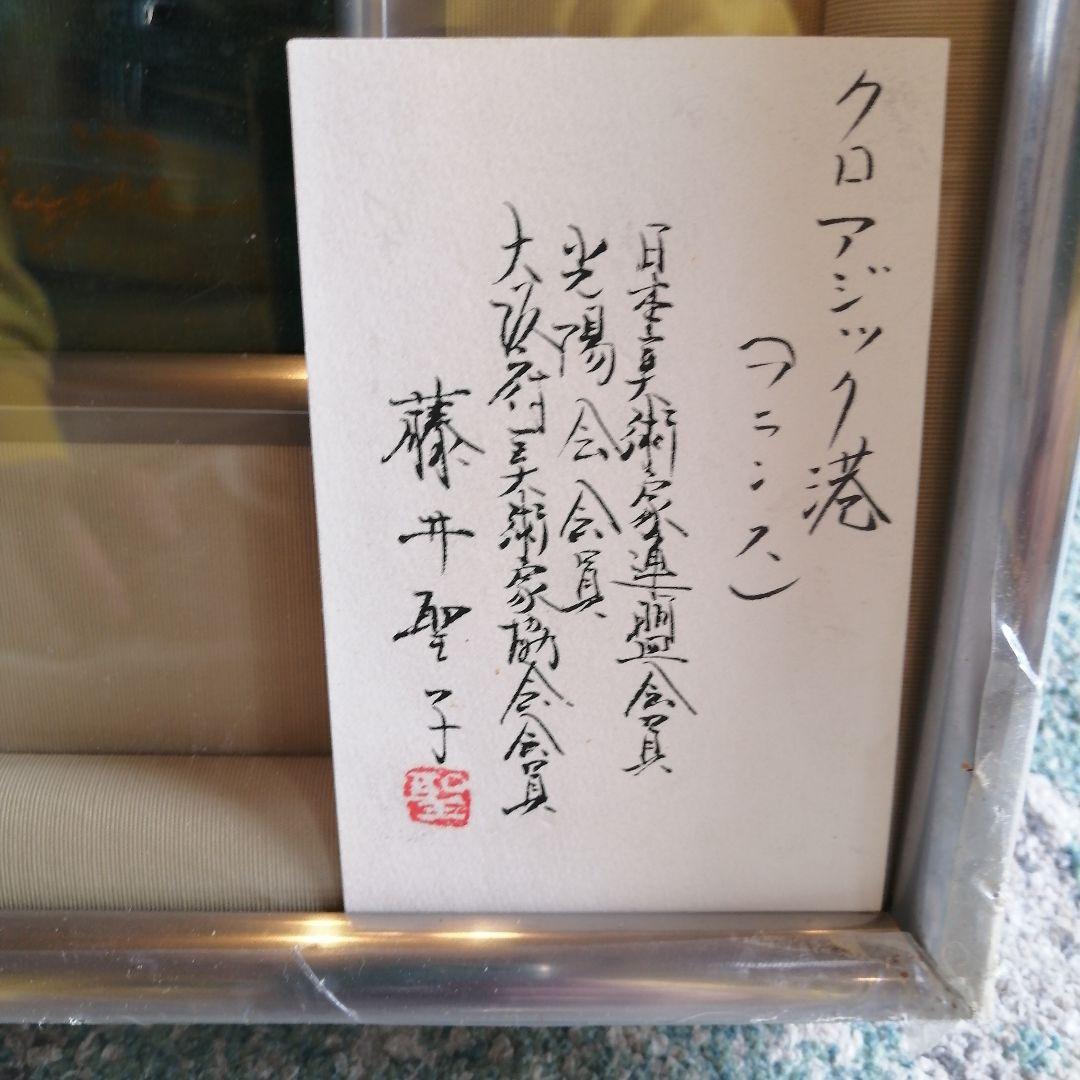 クロアジック港
(フランス)
日本美術家連盟会員
光陽会会員
大阪府美術家協会会員
藤井聖子
聖